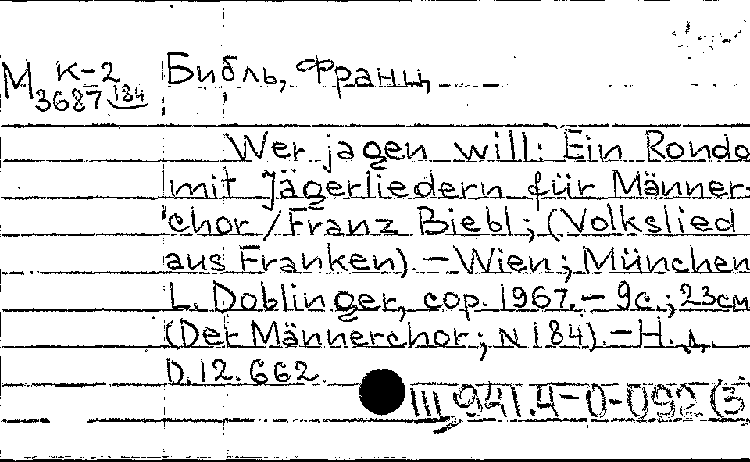 М К-2 Библь, Франц
3687 184
Wer jagen will: Ein Rondo
mit Jägerliedern für Männer-
chor / Franz Biebl; (Volkslied
aus Franken). - Wien; München
L. Doblinger, cop. 1967. - 9с.; 23см
(Der Männerchor; N 184). - Н. д.
D.12.662.
Ш 941.4-0-092 (3